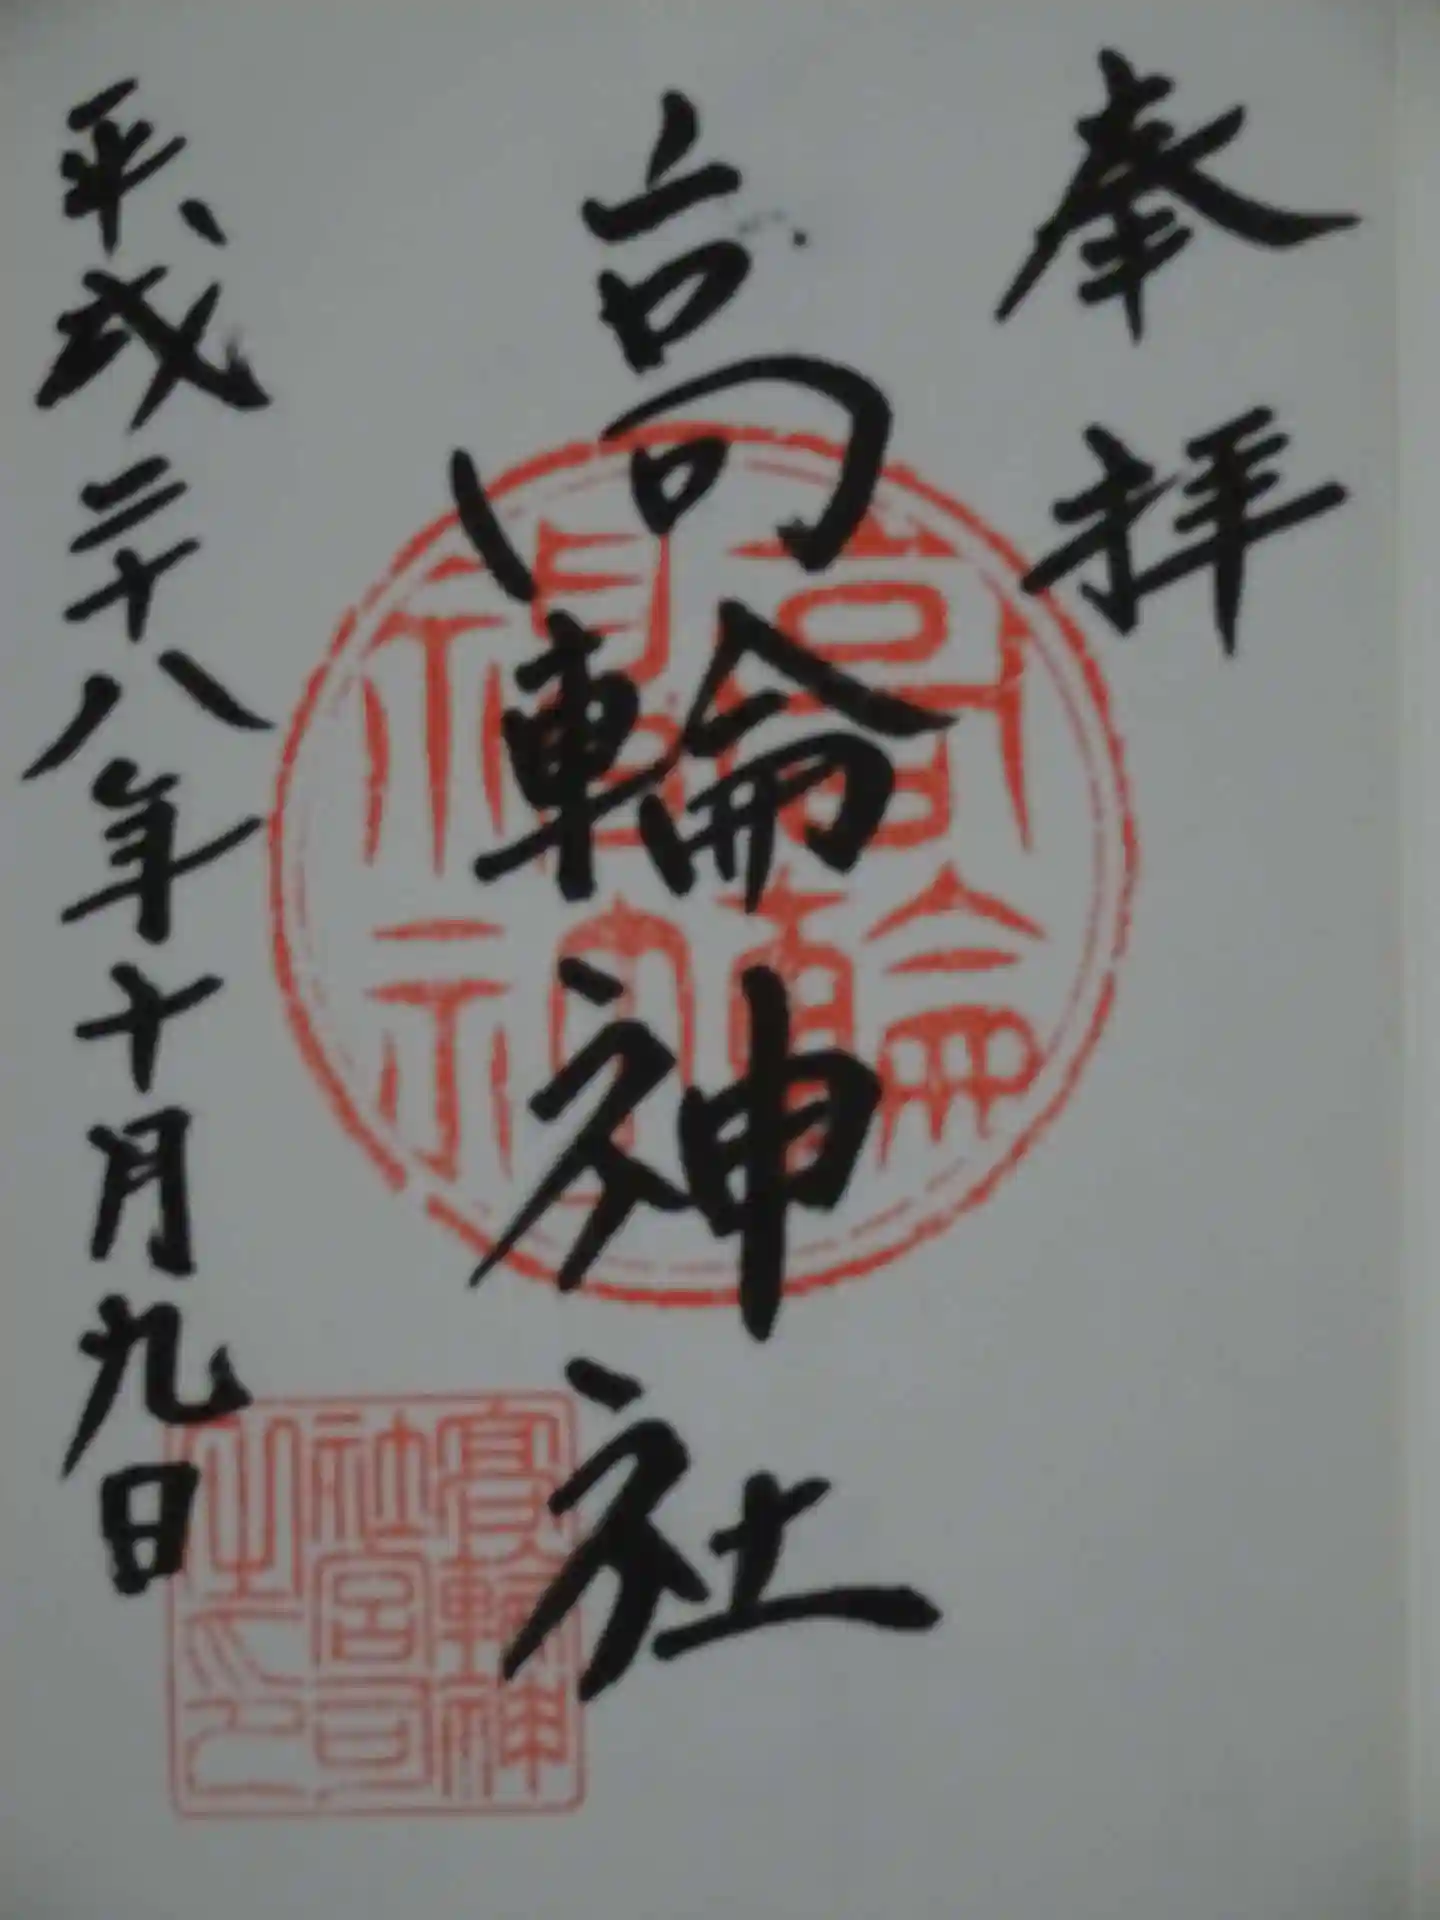 奉拝
高輪神社
平成二十八年十月九日
高輪神社宮司之印